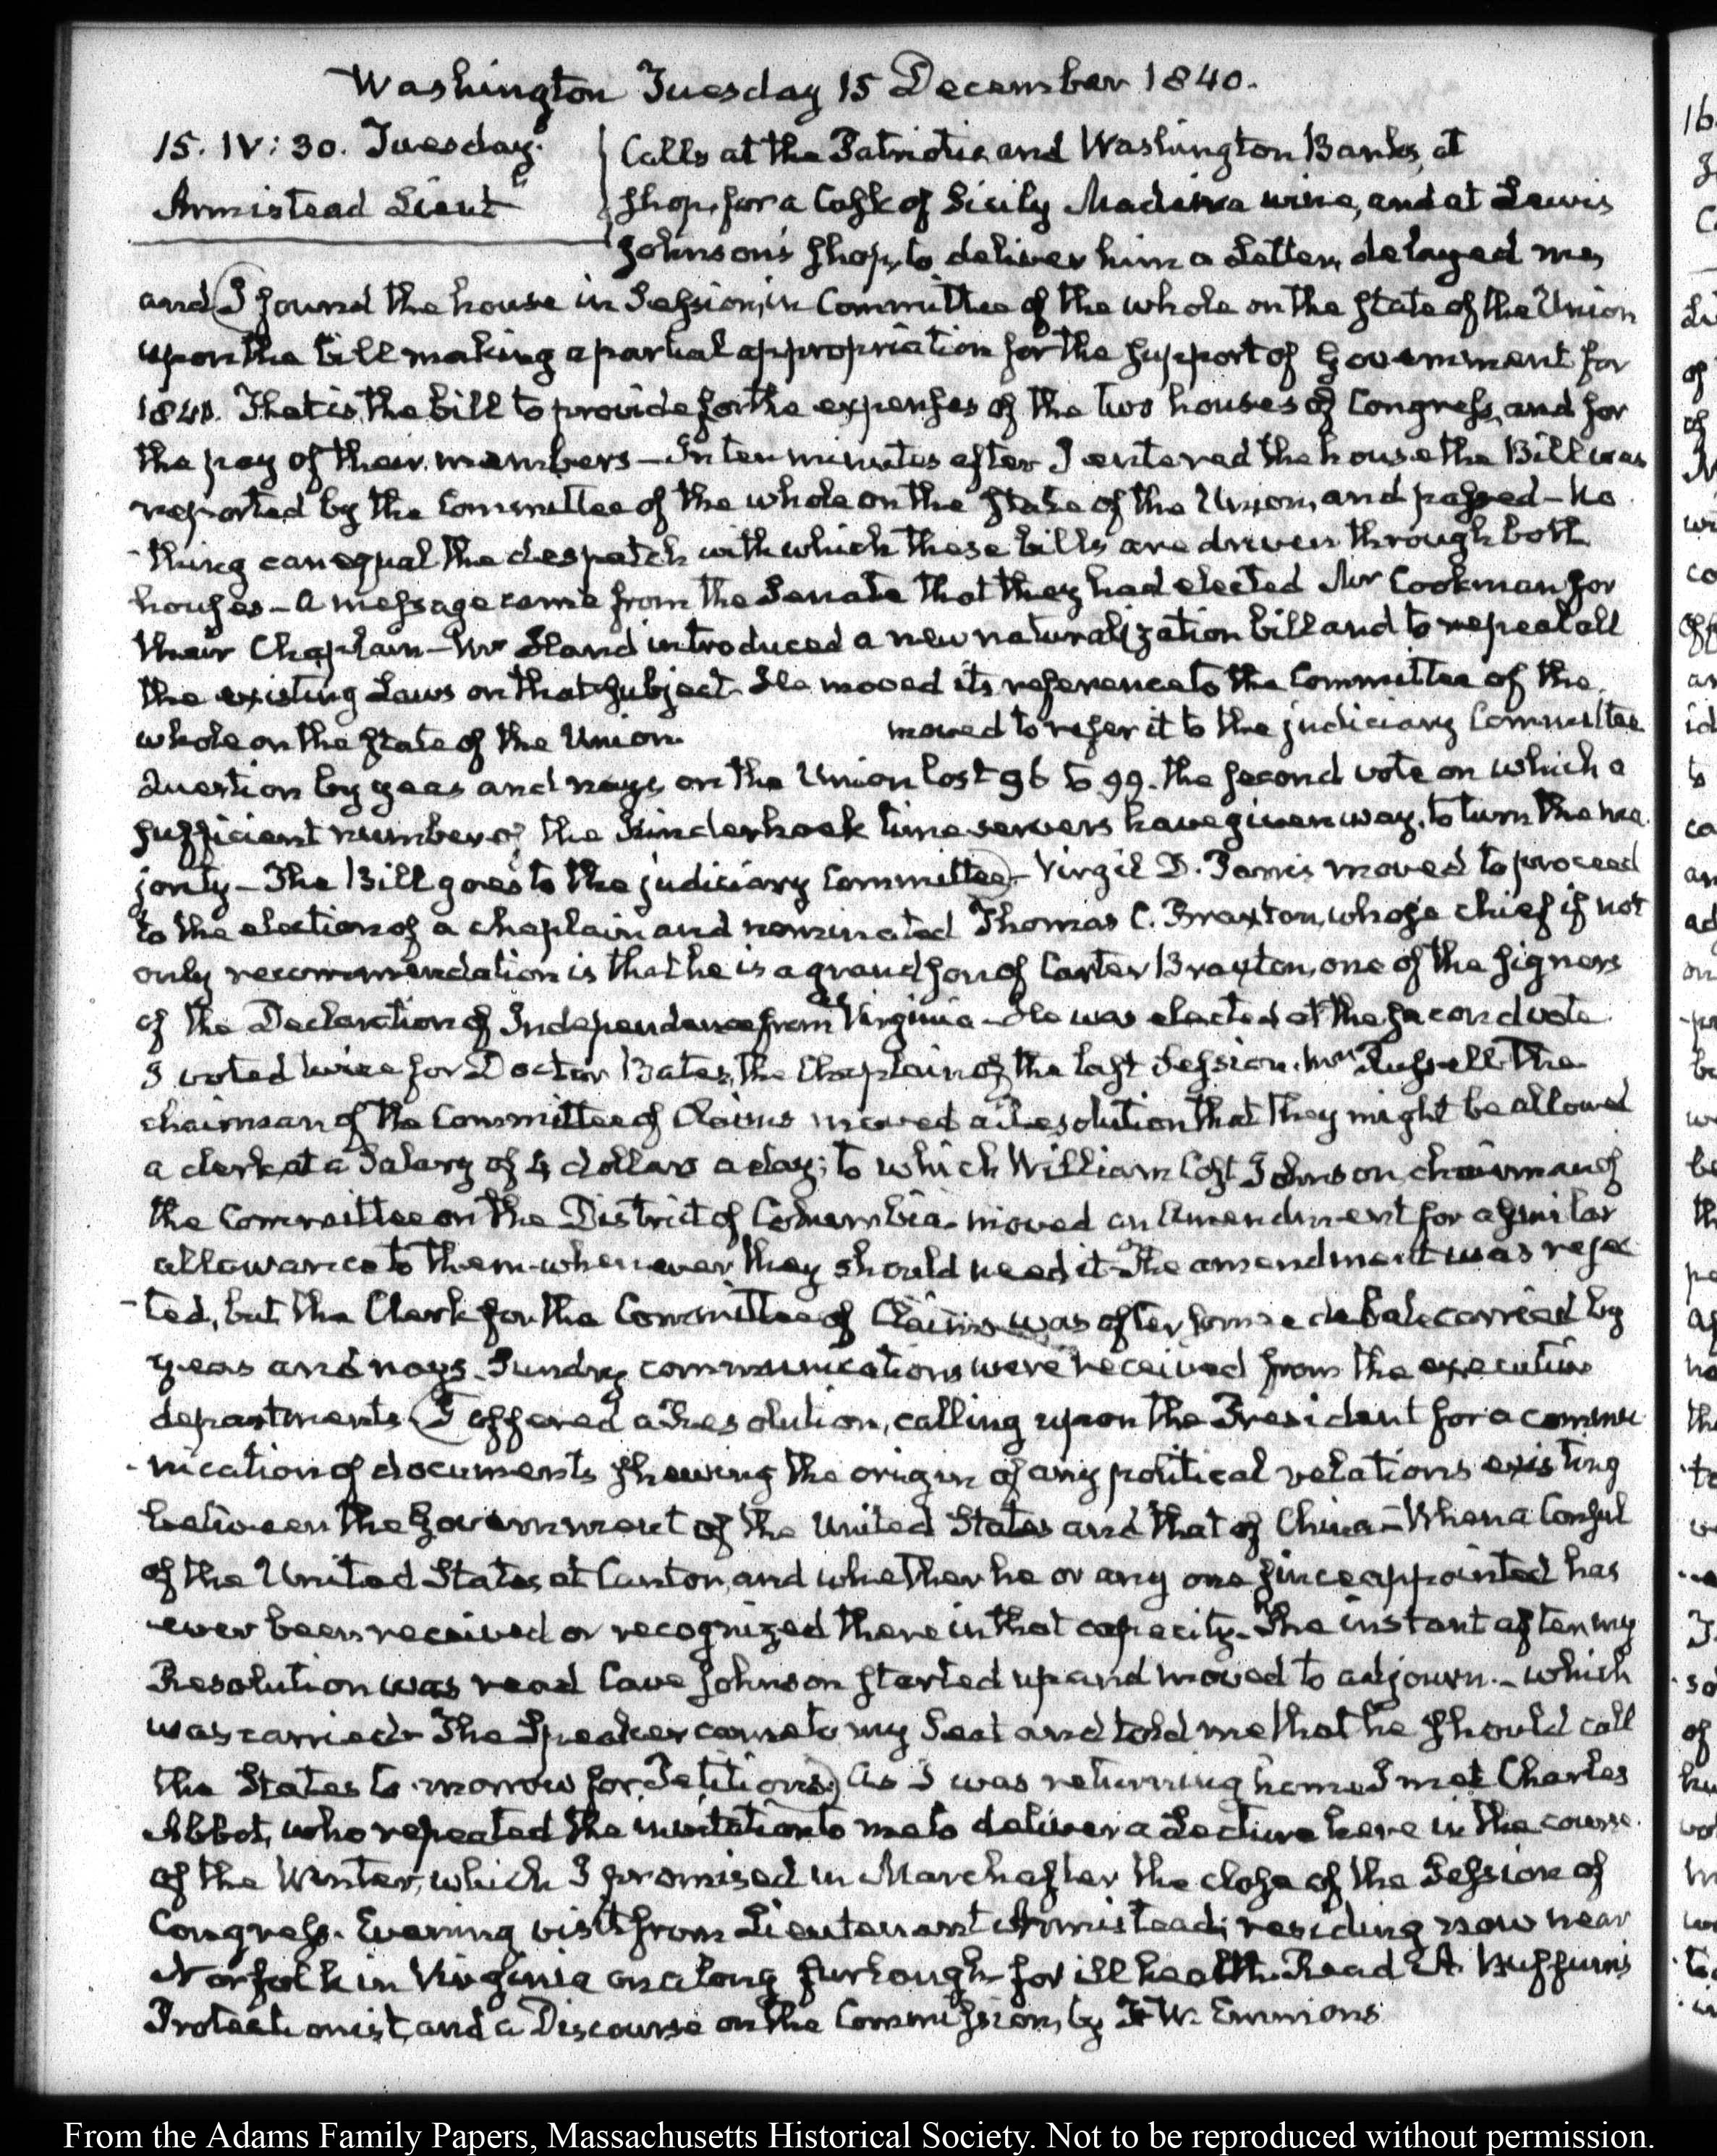 Washington Tuesday 15 December 1840.
15. IV: 30. Tuesday.
Armistead Lieut.t
Calls at the Patriotic and Washington Banks, at
shop, for a Cask of Sicily Madeira wine, and at Lewis
Johnson's shop, to deliver him a Letter, delayed me,
and I found the house in Session, in Committee of the whole on the State of the Union
upon the bill making a partial appropriation for the support of Government for
1841. That is, the bill to provide for the expenses of the two houses of Congress, and for
the pay of their members — In ten minutes after I entered the house the Bill was
reported by the Committee of the whole on the State of the Union, and passed — No
-thing can equal the despatch with which these bills are driven through both
houses — A message came from the Senate that they had elected Mr Cookman for
their Chaplain — Mr Hand introduced a new naturalization bill and to repeal all
the existing Laws on that subject. He moved its reference to the Committee of the
whole on the State of the Union. moved to refer it to the judiciary Committee
Question by yeas and nays, on the Union lost 96 to 99. the second vote on which a
sufficient number of the Kinderhook time servers have given way, to turn the ma
jority — The Bill goes to the judiciary Committee — Virgil D. Parris moved to proceed
to the election of a chaplain and nominated Thomas C. Braxton, whose chief if not
only recommendation is that he is a grandson of Carter Braxton, one of the signers
of the Declaration of Independence from Virginia — He was elected at the second vote
I voted twice for Doctor Bates, the Chaplain of the last Session. Mr Russell the
chairman of the Committee of Claims moved a Resolution that they might be allowed
a clerk, at a Salary of 4 dollars a day; to which William Cost Johnson, chairman of
the Committee on the District of Columbia moved an Amendment for a similar
allowance to them whenever they should need it. The amendment was rejec
-ted, but the Clerk for the Committee of Claims was after some debate carried by
yeas and nays. Sundry communications were received from the executive
departments. I offered a Resolution, calling upon the President for a commu
-nication of documents shewing the origin of any political relations existing
between the Government of the United States and that of China — When a Consul
of the United States, at Canton, and whether he or any one since appointed has
ever been received or recognized there in that capacity — The instant after my
Resolution was read Cave Johnson started up and moved to adjourn. — which
was carried — The Speaker came to my Seat and told me that he should call
the States to-morrow for Petitions. As I was returning home I met Charles
Abbot, who repeated the invitation to me to deliver a Lecture here in the course
of the Winter, which I promised in March after the close of the Session of
Congress. Evening visit from Lieutenant Armistead; residing now near
Norfolk in Virginia on a long furlough for ill health. Read A. Buffum's
Protectionist, and a Discourse on the Commission, by F W. Emmons
From the Adams Family Papers, Massachusetts Historical Society. Not to be reproduced without permission.